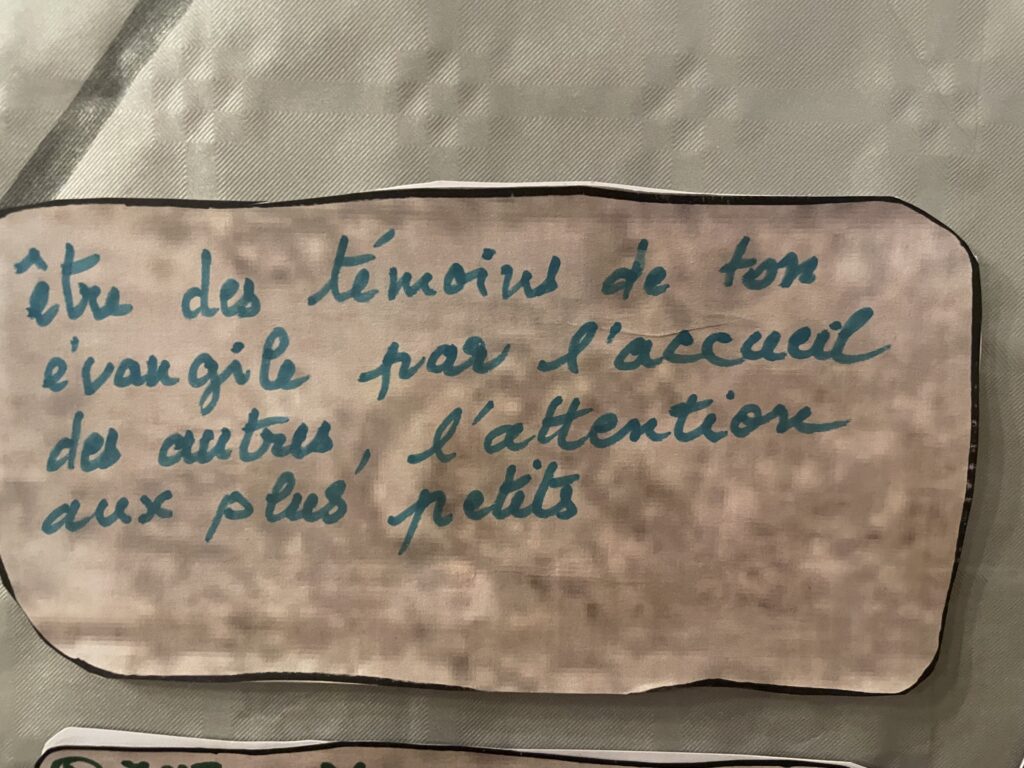 être des témoins de ton
évangile par l'accueil
des autres, l'attention
aux plus petits